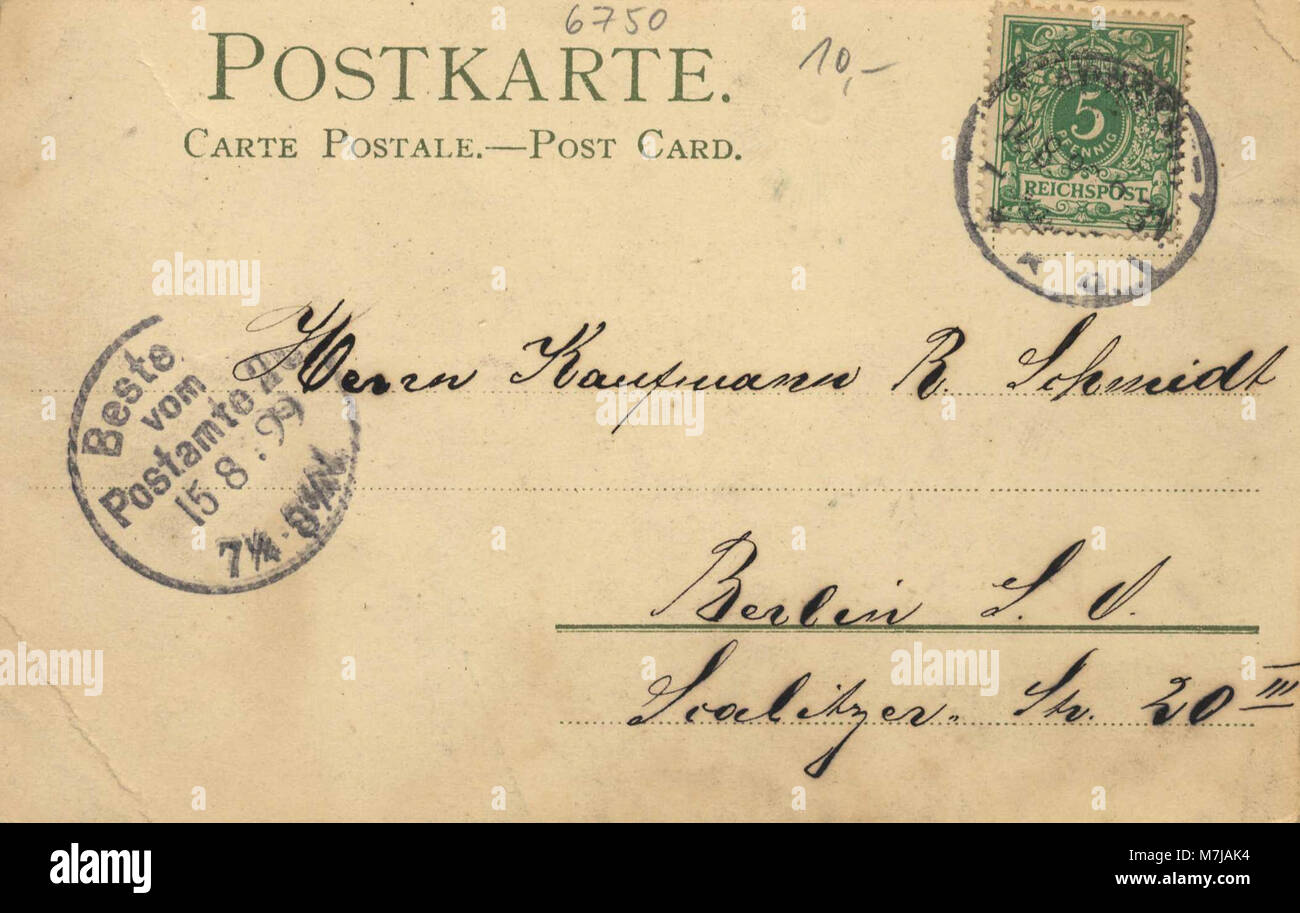 6750
POSTKARTE.
10,-
CARTE POSTALE.—POST CARD.
5
PFENNIG
REICHSPOST
Herrn Kaufmann R. Schmidt
Beste
vom
Postamte
15 8 . 99
7¼-8½N
Berlin S. O.
Scalitzer. Str. 20 III
alamy
Image ID: M7JAK4
www.alamy.com